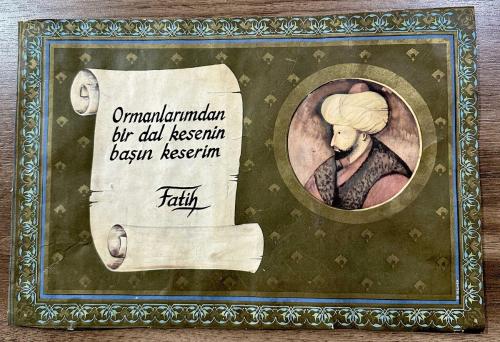 Ormanlarımdan
bir dal kesenin
başın keserim
Fatih